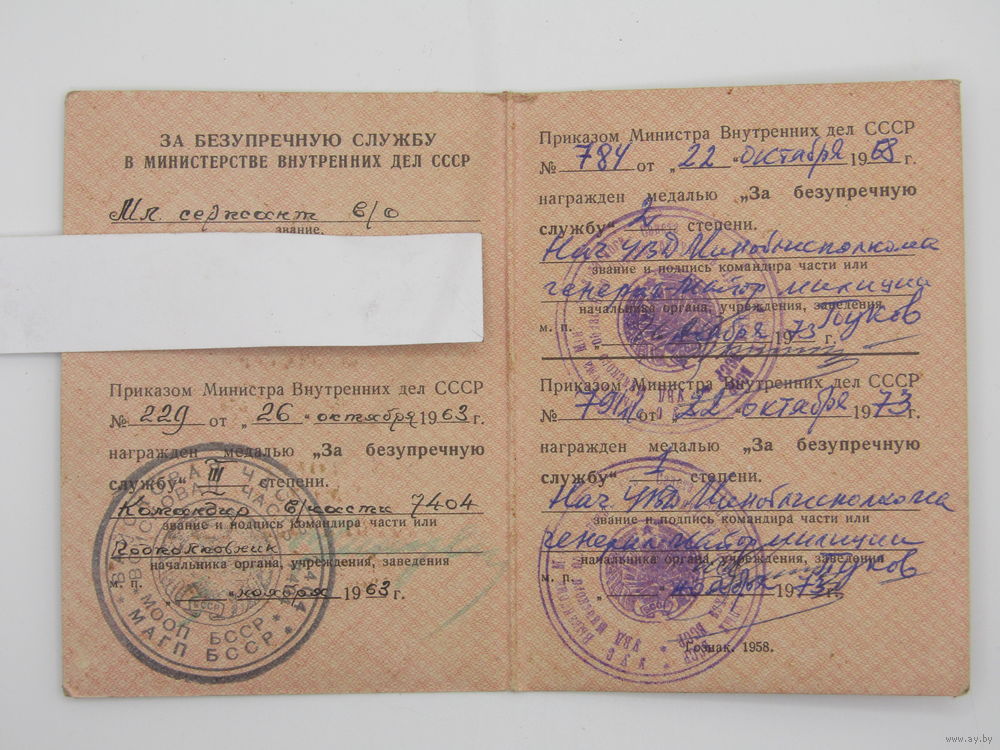 ЗА БЕЗУПРЕЧНУЮ СЛУЖБУ
В МИНИСТЕРСТВЕ ВНУТРЕННИХ ДЕЛ СССР
Мл. сержант в/с
звание,
Приказом Министра Внутренних дел СССР
№ 229 от „ 26 " октября 1963 г.
награжден медалью „За безупречную
службу“ III степени.
Командир в/части 7404
звание и подпись командира части или
Подполковник
начальника органа, учреждения, заведения
м. п.
„ " ноября 1963 г.
ВОЙСКОВАЯ ЧАСТЬ 7404
МООП БССР
МАГП БССР
Приказом Министра Внутренних дел СССР
№ 784 от „ 22 " октября 1968 г.
награжден медалью „За безупречную
службу“ 2 степени.
Нач УВД Миноблисполкома
звание и подпись командира части или
генерал-майор милиции
начальника органа, учреждения, заведения
м. п. ноября 1973 Жуков
Приказом Министра Внутренних дел СССР
№ от „ 22 октября 1973 г.
награжден медалью „За безупречную
службу“ 1 степени.
Нач УВД Миноблисполкома
звание и подпись командира части или
генерал-майор милиции
начальника органа, учреждения, заведения
м. п. Жуков
„ ноября 1973 г.
Гознак. 1958.
www.ay.by